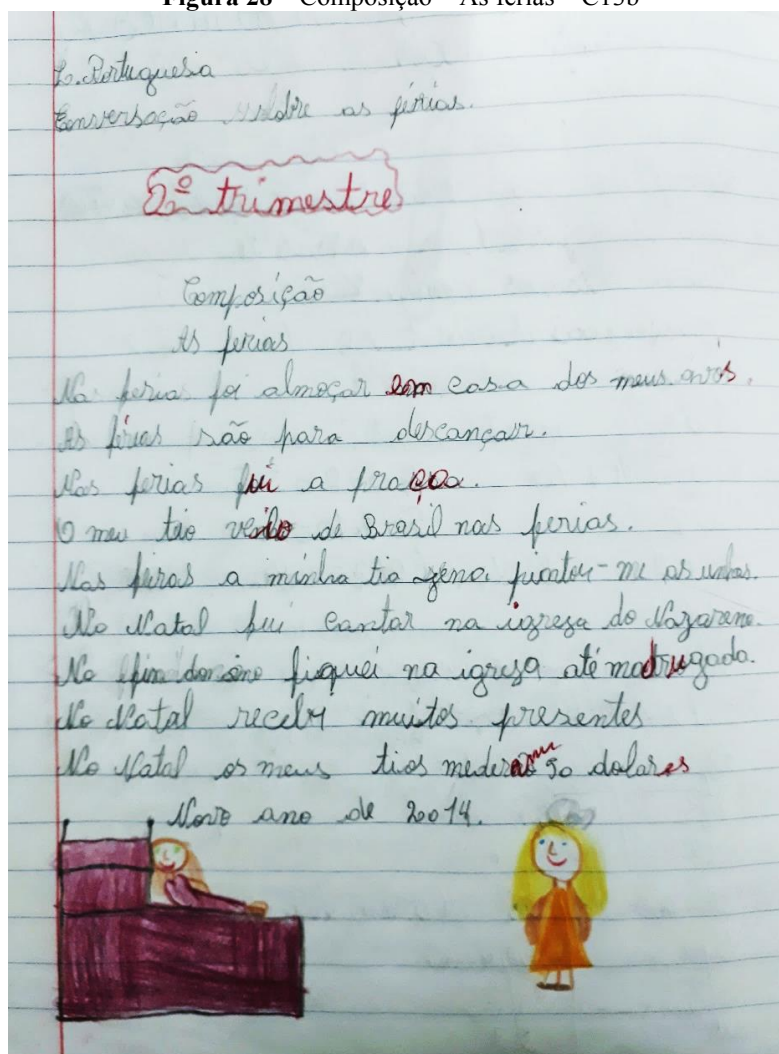 Figura 28 – Composição – As férias – C13b
L. Portuguesa
Conversação sobre as férias.
2º trimestre
Composição
As ferias
Na feria foi almoçar em casa dos meus avós.
As férias são para descançair.
Nas ferias fui a praça.
O meu tio veido de Brasil nas ferias.
Nas feras a minha tia pintou-me as unhas.
No Natal fui cantar na igresa do Nazareno.
No fin do ano fiquei na igresa até madrugada.
No Natal receby muitos presentes
No Natal os meus tios mederam 50 dolares
Novo ano de 2014.